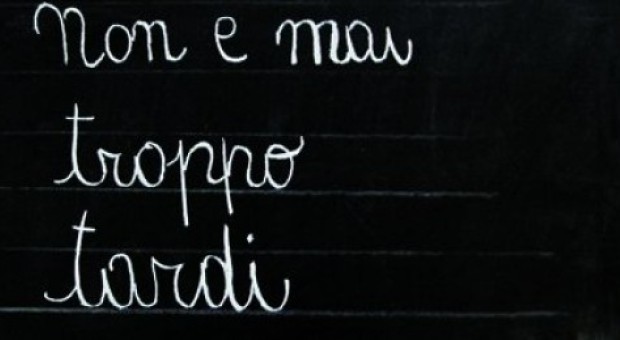 Non e mai
troppo
tardi